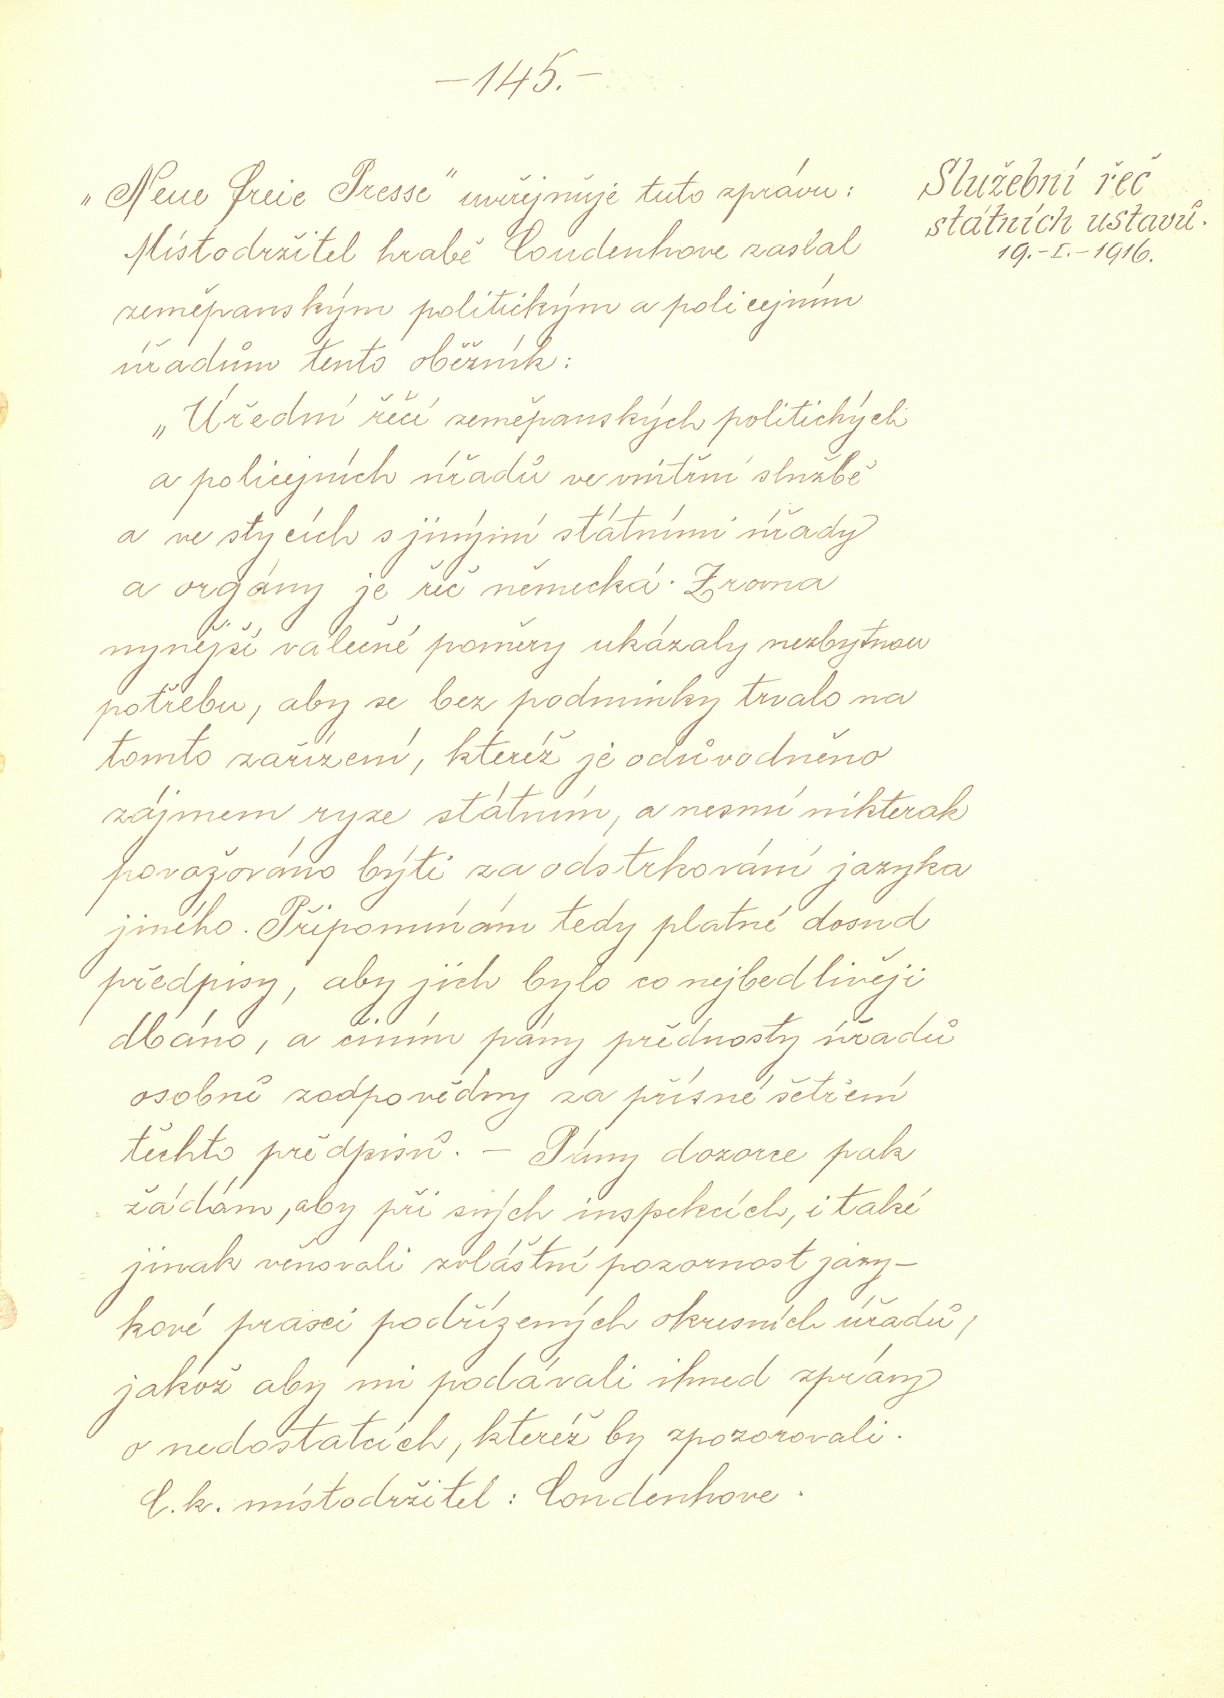 — 145. —
Služební řeč
státních ustavů.
19.-I.-1916.
„Neue freie Presse" uveřejňuje tuto zprávu:
Místodržitel hrabě Coudenhove zaslal
zeměpanským politickým a policejním
úřadům tento oběžník:
„Úřední řečí zeměpanských politických
a policejních úřadů ve vnitřní službě
a ve stycích s jinými státními úřady
a orgány je řeč německá. Zrovna
nynější valečné poměry ukázaly nezbytnou
potřebu, aby se bez podminky trvalo na
tomto zařízení, kteréž je odůvodněno
zájmem ryze státním, a nesmí nikterak
považováno býti za odstrkování jazyka
jiného. Připomínám tedy platné dosud
předpisy, aby jich bylo co nejbedlivěji
dbáno, a činím pány přednosty úřadů
osobně zodpovědny za přísné šetření
těchto předpisů. — Pány dozorce pak
žádám, aby při svých inspekcích, i také
jinak věnovali zvláštní pozornost jazy-
kové praxi podřízených okresních úřadů,
jakož aby mi podávali ihned zprávy
o nedostatcích, kteréž by zpozorovali.
C. k. místodržitel: Coudenhove.